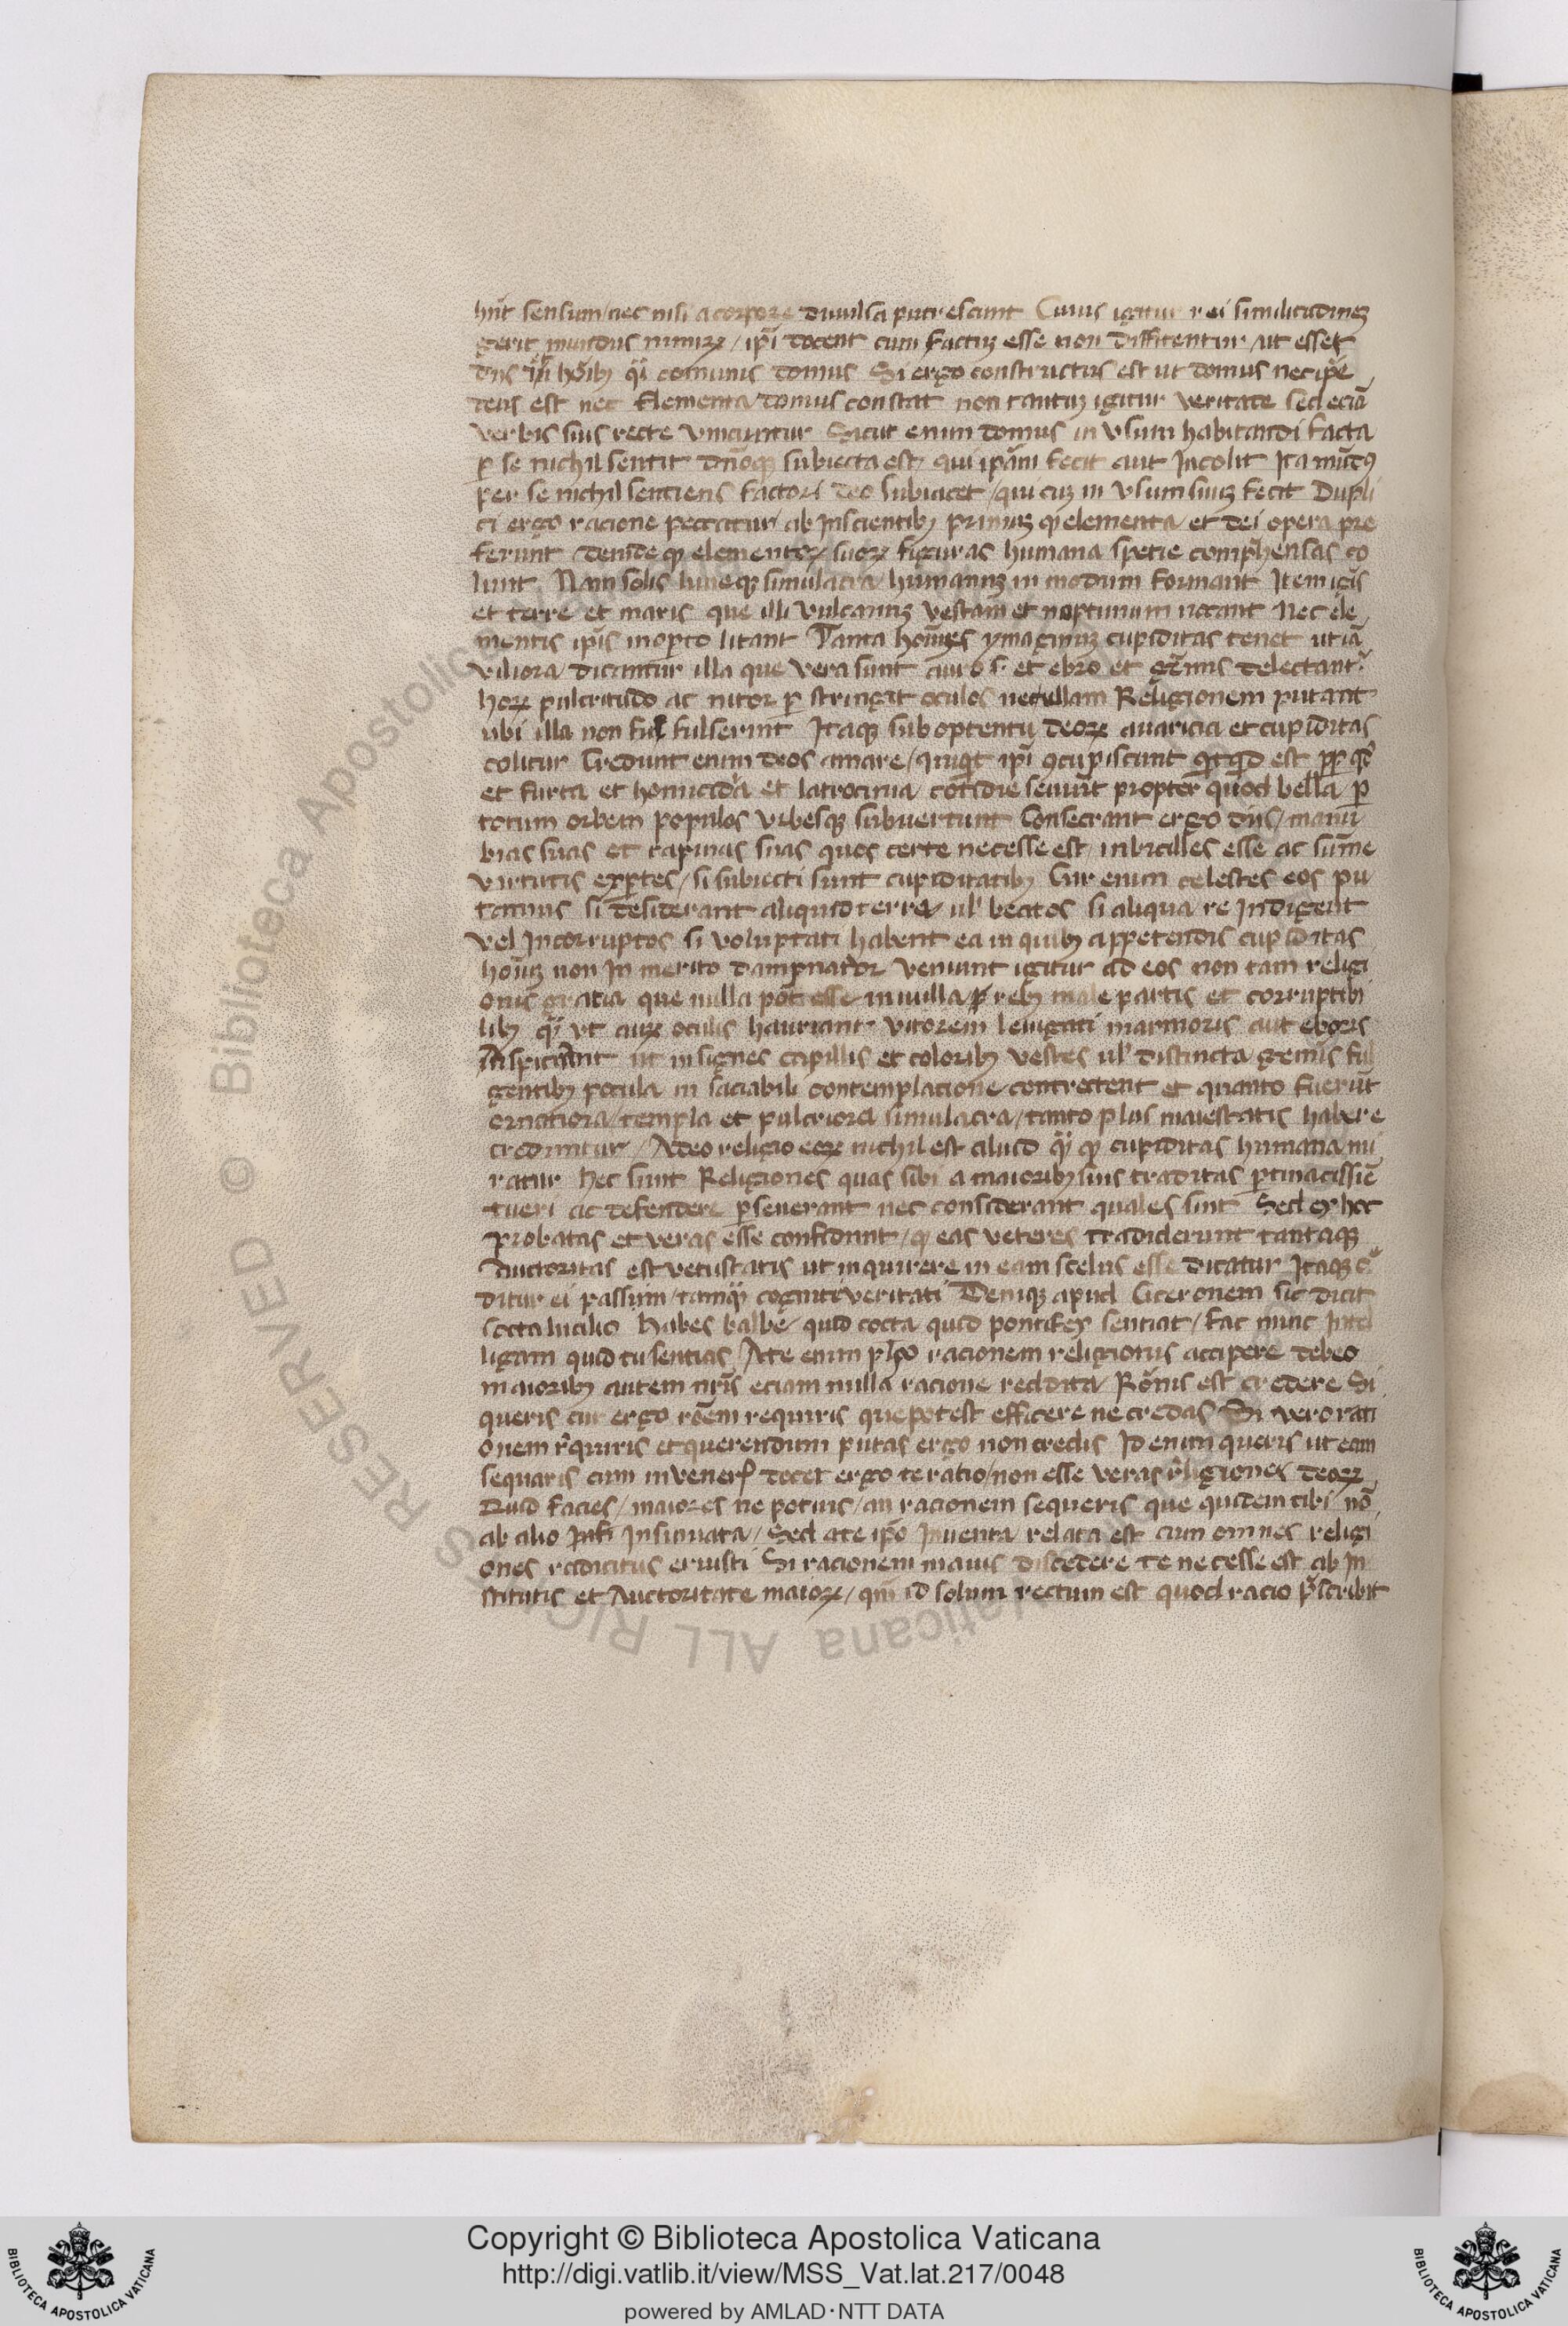 hñt sensum / nec nisi a corpore diuulsa putrescunt Cuius igitur rei similitudineȝ
gerit mundus nimirꝝ / ip̄i docent cum factuȝ esse non diffitentur / ut esset
diis hōibꝫ q̄i comunis domus Si ergo constructus est ut domus nec ip̄e
deus est nec Elementa / domus constat non tantuȝ igitur veritate sed eciā
verbis suis recte vincuntur Sicut enim domus in vsum habitandi facta
ꝑ se nichil sentit dn̄oqꝫ subiecta est / qui ip̄am fecit aut Incolit Ita mūdꝰ
per se nichil sentiens factori deo subiacet / qui euȝ in vsum suuȝ fecit Dupli
ci ergo racione peccatur / ab Inscientibꝫ primuȝ ꝙ elementa et dei opera pre
ferunt deinde ꝙ elementoꝝ suoꝝ figuras humana spetie comp̄hensas co
lunt Nam solis luneqꝫ simulacra humanuȝ in modum formant Item ignis
et terre et maris que illi vulcanuȝ vestam et neptunum uocant Nec ele
mentis ip̄is in oꝑto litant Tanta hom̄es ymaginuȝ cupiditas tenet ut iā
viliora dicantur illa que vera sunt auro s. et ebro et gēmis delectant᷑
hoꝝ pulcritudo ac nitor ꝑ stringit oculos nec ullam Religionem putant
ubi illa non ful fulserint Itaqꝫ sub optentu deoꝝ auaricia et cupiditas
colitur Credunt enim deos amare / quiqͥt ip̄i ꝯcupiscunt qͥtqͥd est ꝓpͭ qd̛
et furta et homicidia et latrocinia cotidie seuiūt propter quod bella ꝑ
totum orbem populos vrbesqꝫ subuertunt Consecrant ergo diis / manu
bias suas et rapinas suas quos certe necesse est inbicilles esse ac sum̄e
virtutis exꝑtes / si subiecti sunt cupiditatibꝫ Cur enim celestes eos pu
tamus si desiderant aliquid terre / ul̛ beatos si aliqua re Indigent
vel Incorruptos si voluptati habent ea in quibꝫ appetendis cupiditas
hoīuȝ non In merito dampnator Veniunt igitur ad eos non tam religi
onis gratia que nulla pōt esse in nulla ꝑ rebꝫ male partis et corruptibi
libꝫ q̄ȝ vt auꝝ oculis hauriant vitorem leuigati marmoris aut eboris
Aspiciant ut insignes capillis et coloribꝫ vestes ul̛ distincta gemis ful
gentibꝫ pocula in saciabili contemplacione contrectent et quanto fuerūt
ornatiora / templa et pulcriora simulacra / tanto plus maiestatis habere
creduntur / Adeo religio eoꝝ nichil est aliud q̄ȝ ꝙ cupiditas humana mi
ratur hec sunt Religiones quas sibi a maioribꝫ suis traditas ꝑtinacissīe
tueri ac defendere ꝑseuerant nec considerant quales sint Sed ex hoc
probatas et veras esse confidunt / ꝙ eas veteres tradiderunt tantaqꝫ
auctoritas est vetustatis ut inquirere in eam scelus esse dicatur Itaqꝫ cͤ
ditur ei passim / tamq̄ȝ cogniti veritati Deniqꝫ apud Ciceronem sic dicit
cocta lucilio habes balbe / quid cocta quid pontifex sentiat / fac nunc Intel
ligam quid tu sentias A te enim pħo racionem religionis accipere debeo
maioribꝫ autem nr̄is eciam nulla racione reddita Rōnis est credere Si
queris cur ergo rōem requiris que potest efficere ne credas Si vero rati
onem rͤquiris et querendum putas ergo non credis Id enim queris ut eam
sequaris cum inveneris docet ergo te ratio / non esse veras rͤligiones deoꝝ
Quid facies / maiores ne potius / an racionem sequeris que quidem tibi nō
ab alio Insinuata / Sed a te ip̄o Inuenta relata est cum omnes religi
ones radicitus eruisti Si racionem mauis discedere te necesse est ab In
stitutis et Auctoritate maioꝝ / qm̄ id solum rectum est quod racio p̄scribit
Copyright © Biblioteca Apostolica Vaticana
http://digi.vatlib.it/view/MSS_Vat.lat.217/0048
powered by AMLAD·NTT DATA
BIBLIOTECA APOSTOLICA VATICANA
BIBLIOTECA APOSTOLICA VATICANA
© Biblioteca Apostolica Vaticana ALL RIGHTS RESERVED